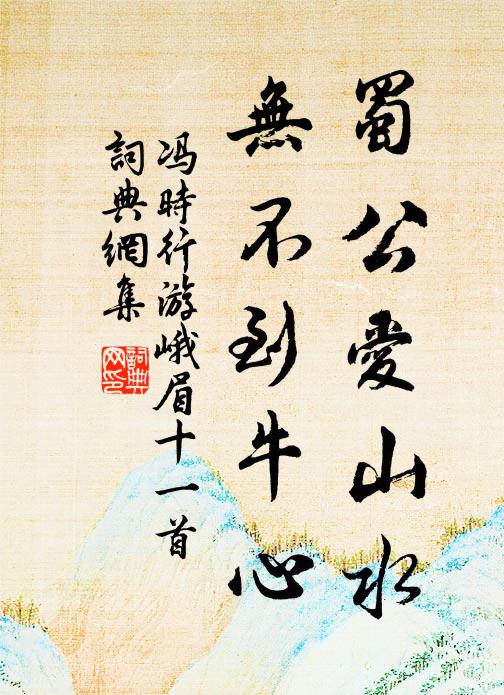 蜀公愛山水
無不到牛心
冯時行游峨眉十一首
詞典網集
詞典
网印